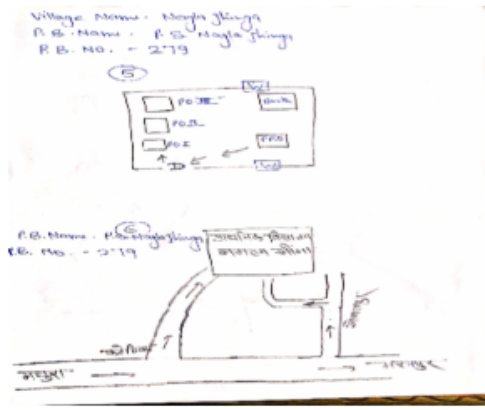 Village Name. Nagla Jhinga
P.B. Name. P.S Nagla Jhinga
P.B. No. - 279
5
W
PO III
Booth
PO II
PO I
PRO
D
W
6
P.B. Name. P.S Nagla Jhinga
P.B. No. - 279
प्राथमिक विद्यालय
नगला झींगा
मथुरा